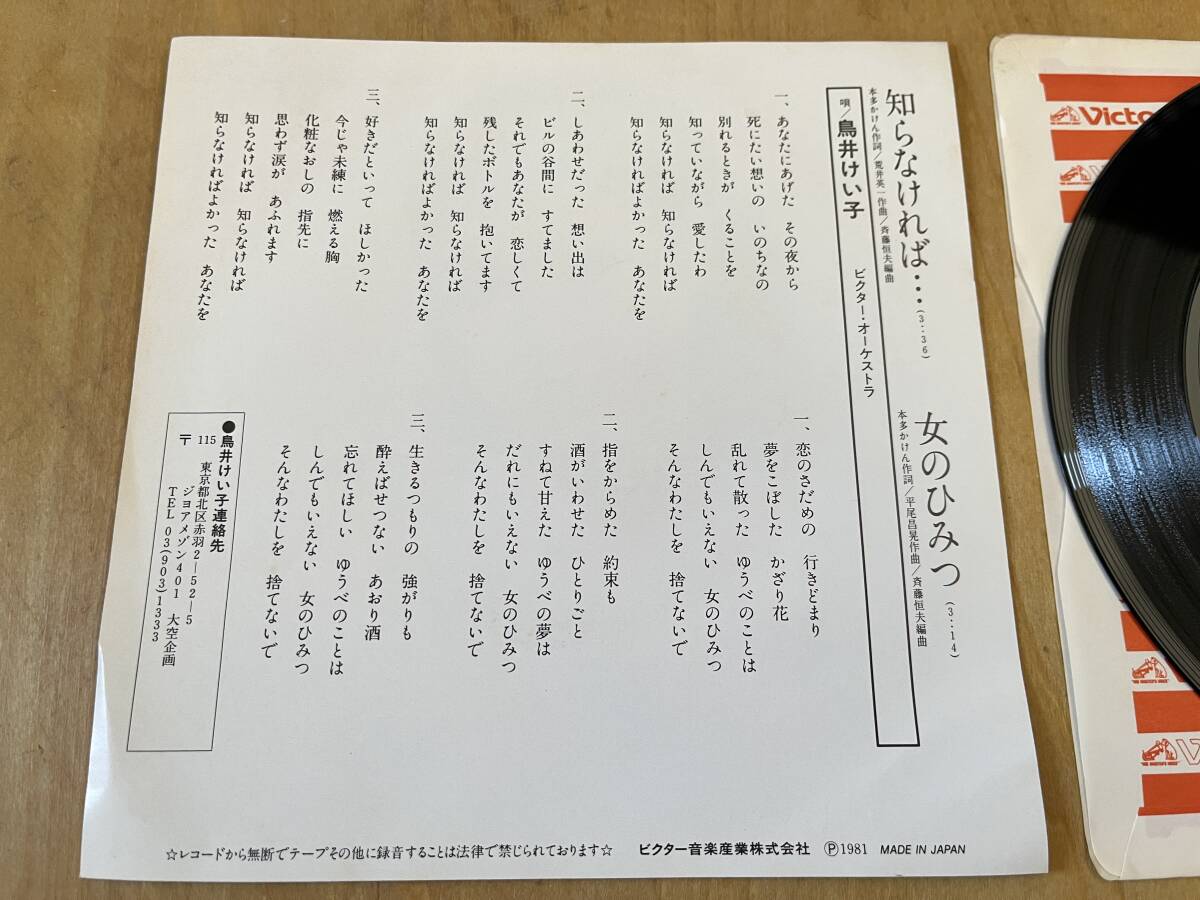 知らなければ…(3:36)
本多かけん作詞/荒井英一作曲/斉藤恒夫編曲
女のひみつ(3:14)
本多かけん作詞/平尾昌晃作曲/斉藤恒夫編曲
唄/鳥井けい子
ビクター・オーケストラ
一、あなたにあげた その夜から
死にたい想いの いのちなの
別れるときが くることを
知っていながら 愛したわ
知らなければ 知らなければ
知らなければよかった あなたを
二、しあわせだった 想い出は
ビルの谷間に すてました
それでもあなたが 恋しくて
残したボトルを 抱いてます
知らなければ 知らなければ
知らなければよかった あなたを
三、好きだといって ほしかった
今じゃ未練に 燃える胸
化粧なおしの 指先に
思わず涙が あふれます
知らなければ 知らなければ
知らなければよかった あなたを
一、恋のさだめの 行きどまり
夢をこぼした かざり花
乱れて散った ゆうべのことは
しんでもいえない 女のひみつ
そんなわたしを 捨てないで
二、指をからめた 約束も
酒がいわせた ひとりごと
すねて甘えた ゆうべの夢は
だれにもいえない 女のひみつ
そんなわたしを 捨てないで
三、生きるつもりの 強がりも
酔えばせつない あおり酒
忘れてほしい ゆうべのことは
しんでもいえない 女のひみつ
そんなわたしを 捨てないで
●鳥井けい子連絡先
115 東京都北区赤羽2-52-5
〒 ジョアメゾン401 大空企画
TEL 03(903)1333
☆レコードから無断でテープその他に録音することは法律で禁じられております☆ ビクター音楽産業株式会社 Ⓟ1981 MADE IN JAPAN
Victo
V